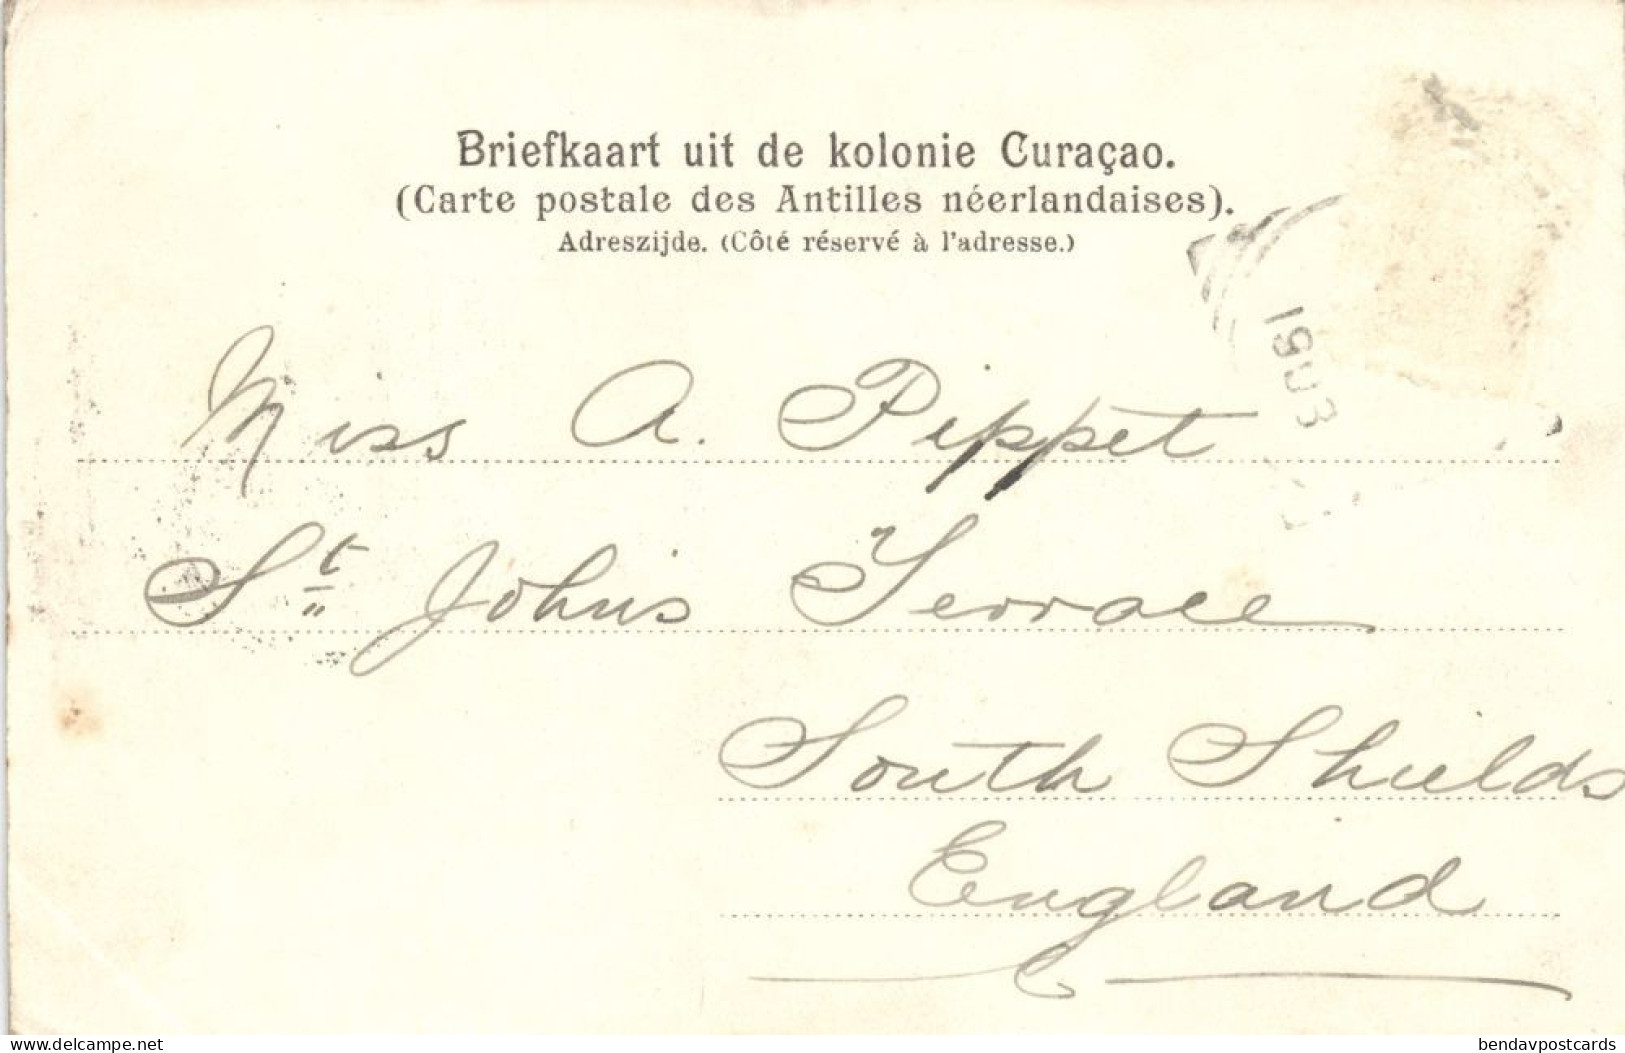 Briefkaart uit de kolonie Curaçao.
(Carte postale des Antilles néerlandaises).
Adreszijde. (Côté réservé à l'adresse.)
1903
Miss A. Pippet
St Johns Terrace
South Shields
England
www.delcampe.net
bendavpostcards